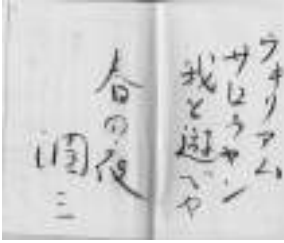 ウヰリアム
サロウヤン
我と遊べや
春の夜
潤三